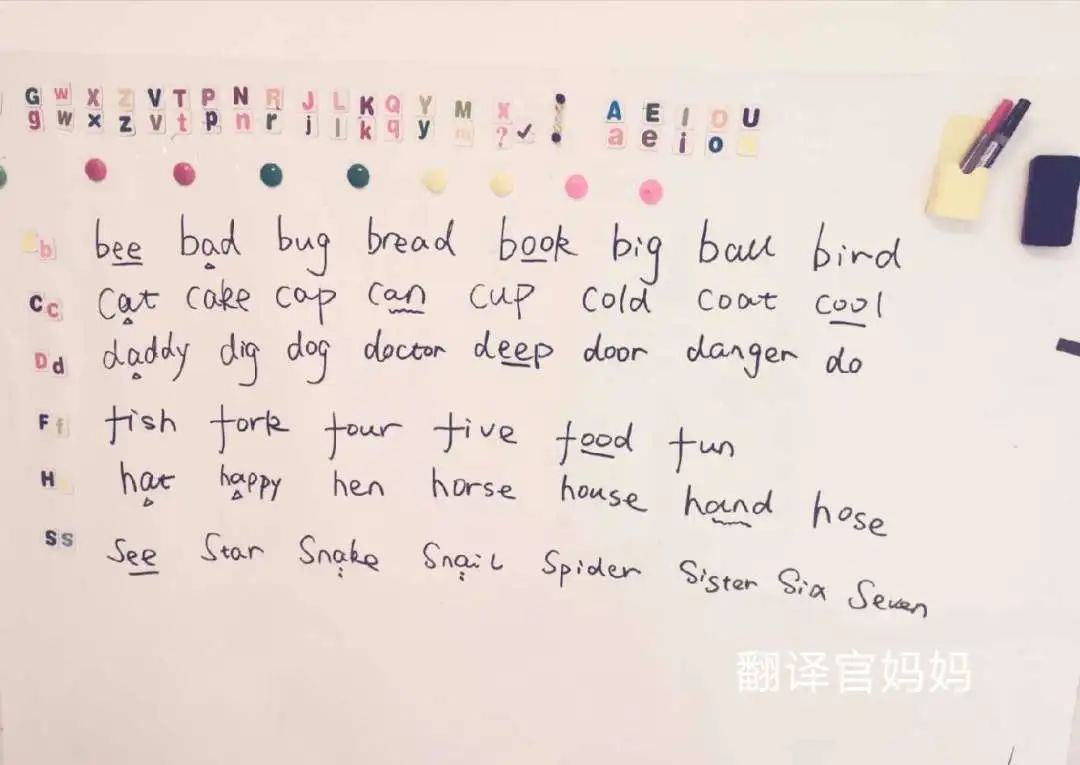 G W X Z V T P N R J L K Q Y M X ! A E I O U
g w x z v t p n r j l k q y m ? ✓ a e i o
b bee bad bug bread book big ball bird
C c cat cake cap can cup cold coat cool
D d daddy dig dog doctor deep door danger do
F f fish fork four five food fun
H hat happy hen horse house hand hose
S s See Star Snake Snail Spider Sister Six Seven
翻译官妈妈